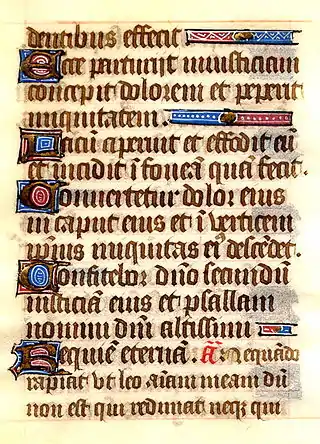 dentibus effecit
Ecce parturijt iniusticiam
concepit dolorem et peperit
iniquitatem.
Lacū aperuit et effodit eū
et incidit ī foueā quā fecit.
Conuertetur dolor eius
in caput eius et ī verticem
ipsius iniquitas eiꝰ descēdet.
Confitebor dn̄o secundū
iusticiā eius et psallam
nomini dn̄i altissimi
Requiē eternā. Añ Nequādo
rapiat vt leo aīam meam dū
non est qui redimat neqꝫ qui